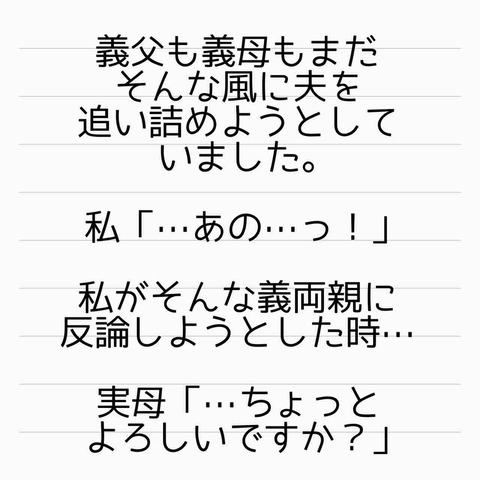 義父も義母もまだ
そんな風に夫を
追い詰めようとして
いました。
私「…あの…っ！」
私がそんな義両親に
反論しようとした時…
実母「…ちょっと
よろしいですか？」